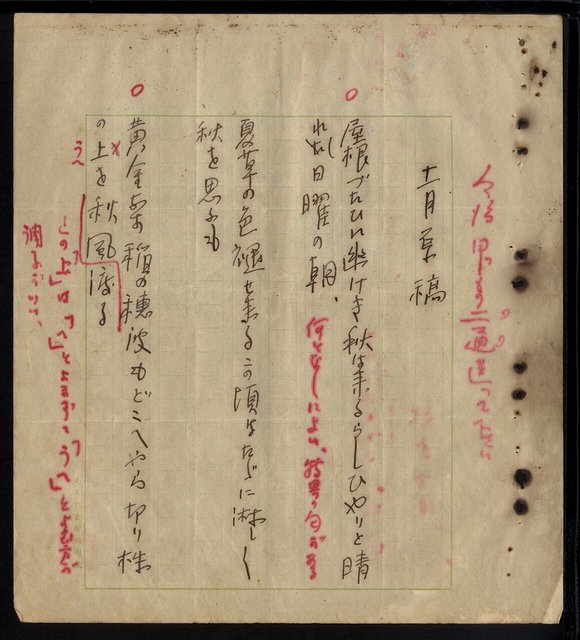 十一月草稿
屋根づたひに幽けき秋は来るらしひやりと晴
れし日曜の朝、
何となしによい、特異の匂がある
夏草の色褪せ来るこの頃はたゞに淋しく
秋を思ふも
黄金なす稲の穂波もどこへやら切り株
の上を秋風渡る
うへ
この上は「へ」とよまず「うへ」とよむ方が
調子がいゝ、